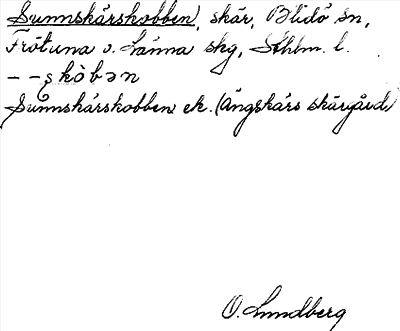 Sunnskärskobben, skär, Blidö sn,
Frötuna o. Länna skg, Sthlm. l.
– – ʂkòbən
Sunnskärskobben ek. (Ängskärs skärgård)
O. Lundberg